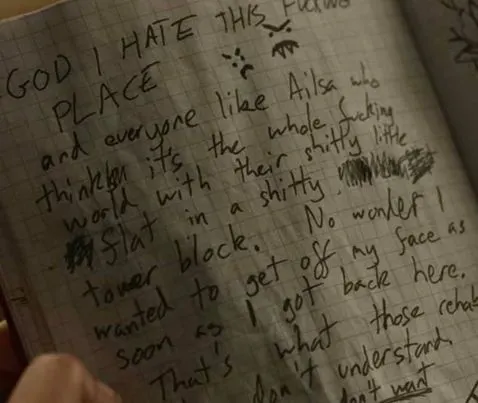 GOD I HATE THIS FUCKING
PLACE
and everyone like Ailsa who
thinks it's the whole fucking
world with their shitty little
flat in a shitty
tower block. No wonder I
wanted to get off my face as
soon as I got back here.
That's what those rehab
don't understand.
don't want